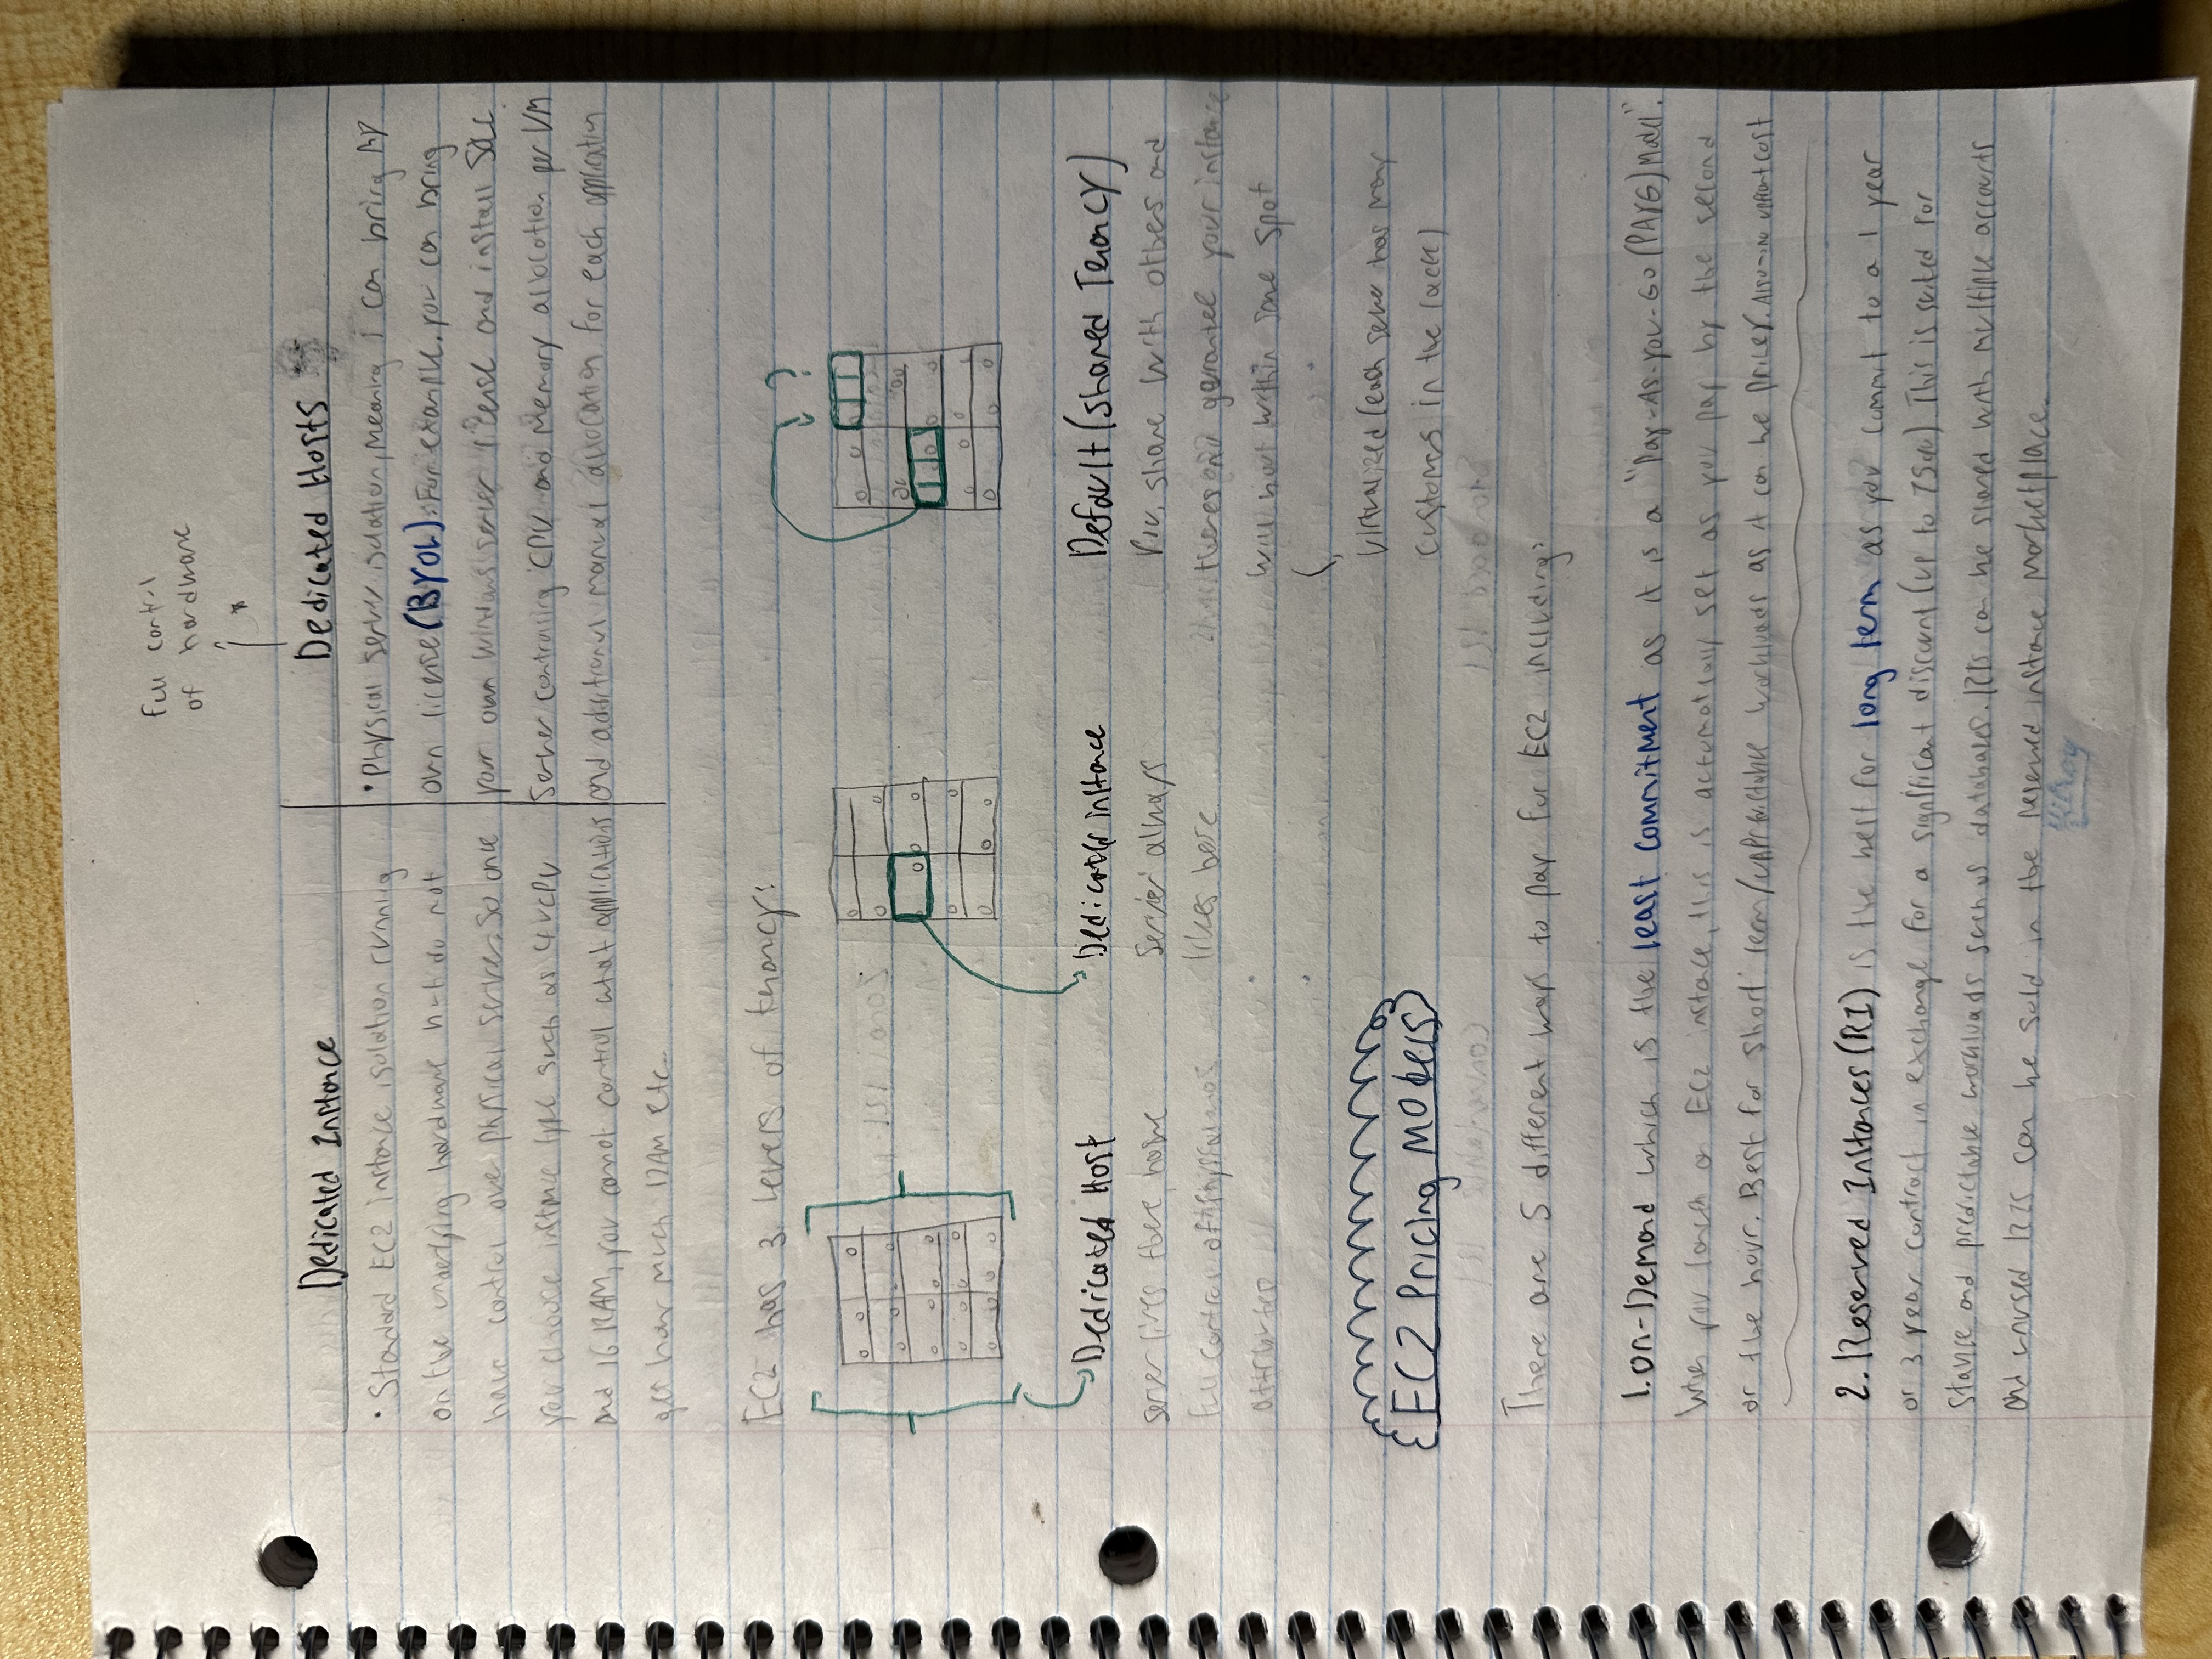 Full control
of hardware
Dedicated Instance
• Standard EC2 instance isolation running
on the underlying hardware but do not
have control over physical server. So once
you choose instance type such as 4 vCPU
and 16 RAM, you cannot control what applications
get how much RAM etc.
Dedicated Hosts
• Physical server isolation, meaning i can bring my
own license (BYOL). For example, you can bring
your own windows server license and install SQL
Server controlling CPU and memory allocation per VM
and additional manual allocation for each application
EC2 has 3 levels of tenancy:
?
Dedicated Host
server lives there, have
full control of
attributes
Dedicated instance
Server always
lives here
Default (shared Tenancy)
You share with others and
theres no garantee your instance
will within same spot
virtualized (each server has many
customers in the rack)
EC2 Pricing Models
There are 5 different ways to pay for EC2 including:
1. On-Demand which is the least commitment as it is a "Pay-As-you-Go (PAYG) Model".
When you launch an EC2 instance, this is automatically set as you pay by the second
or the hour. Best for short term/unpredictable workloads as it can be pricey. Also no upfront cost
2. Reserved Instances (RI) is the best for long term as you commit to a 1 year
or 3 year contract in exchange for a significant discount (up to 75%) This is suited for
stable and predictable workloads such as databases. RIs can be shared with multiple accounts
and unused RIs can be sold in the reserved instance marketplace.
Kilroy